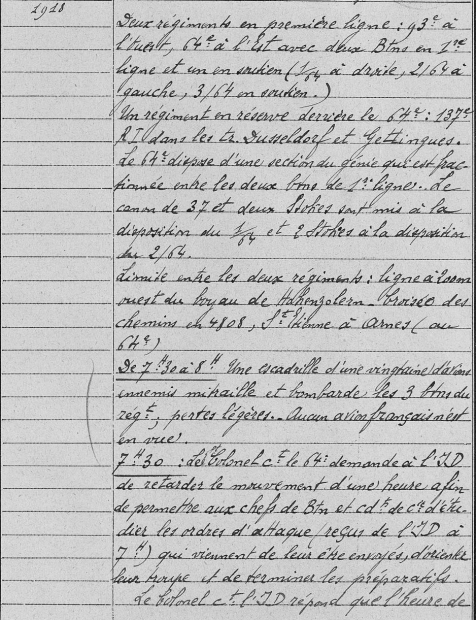 1918
Deux régiments en première ligne : 93e à
l'ouest, 64e à l'Est avec deux Btns en 1ère
ligne et un en soutien (1/64 à droite, 2/64 à
gauche, 3/64 en soutien.)
Un régiment en réserve derrière le 64e : 137e
RI dans les tr. Dusseldorf et Gettingues.
Le 64e dispose d'une section du génie qui est frac-
tionnée entre les deux btns de 1e lignes. Le
canon de 37 et deux Stokes sont mis à la
disposition du 1/64 et 2 Stokes à la disposition
du 2/64.
Limite entre les deux régiments : ligne à 200m
ouest du boyau de Hohenzolern - croisée des
chemins en 4808, St Etienne à Arnes (au
64e)
De 7H30 à 8H Une escadrille d'une vingtaine d'avions
ennemis mitraille et bombarde les 3 btns du
régt, pertes légères. Aucun avion français n'est
en vue.
7H30 : Le Colonel ct le 64e demande à l'ID
de retarder le mouvement d'une heure afin
de permettre aux chefs de Btn et cdt de cie d'étu-
dier les ordres d'attaque (reçus de l'ID à
7H) qui viennent de leur être envoyés, d'orienter
leur troupe et de terminer les préparatifs.
Le Colonel ct l'ID répond que l'heure de